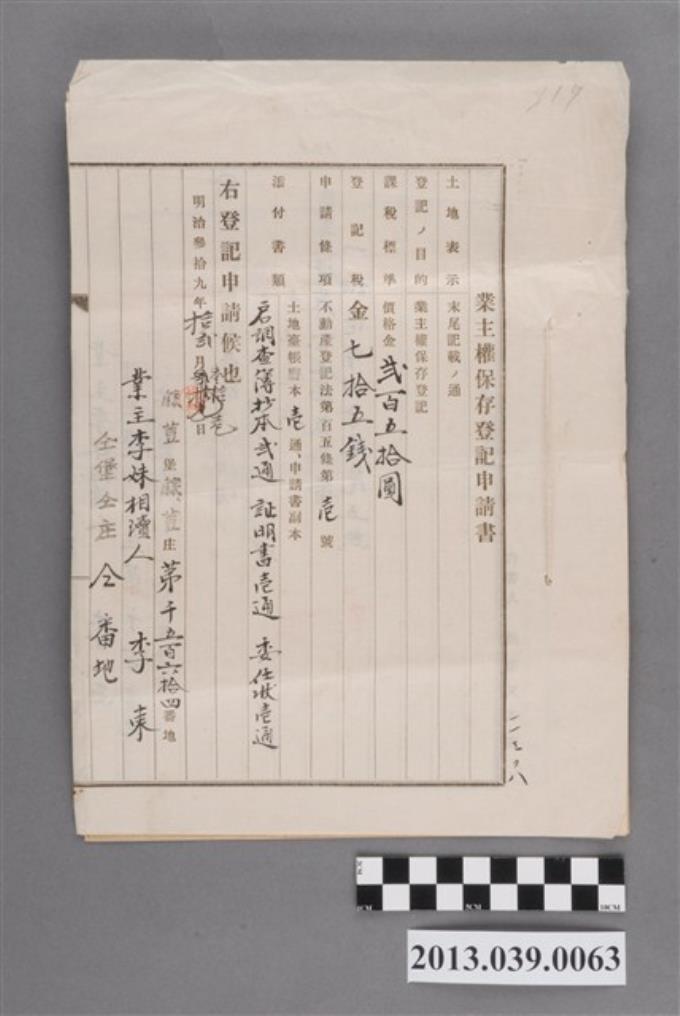 業主權保存登記申請書
土地表示 末尾記載ノ通
登記ノ目的 業主權保存登記
課稅標準 價格金 貳百五拾圓
登記稅 金 七拾五錢
申請條項 不動產登記法第百五條第 壹 號
添付書類 土地臺帳謄本 壹 通、申請書副本
戶調查簿抄本貳通 証明書壱通 委任狀壱通
右登記申請候也
明治參拾九年拾貳月 日
堡 庄 第千五百六拾四番地
業主李妹相續人 李東
仝堡仝庄仝番地
2013.039.0063